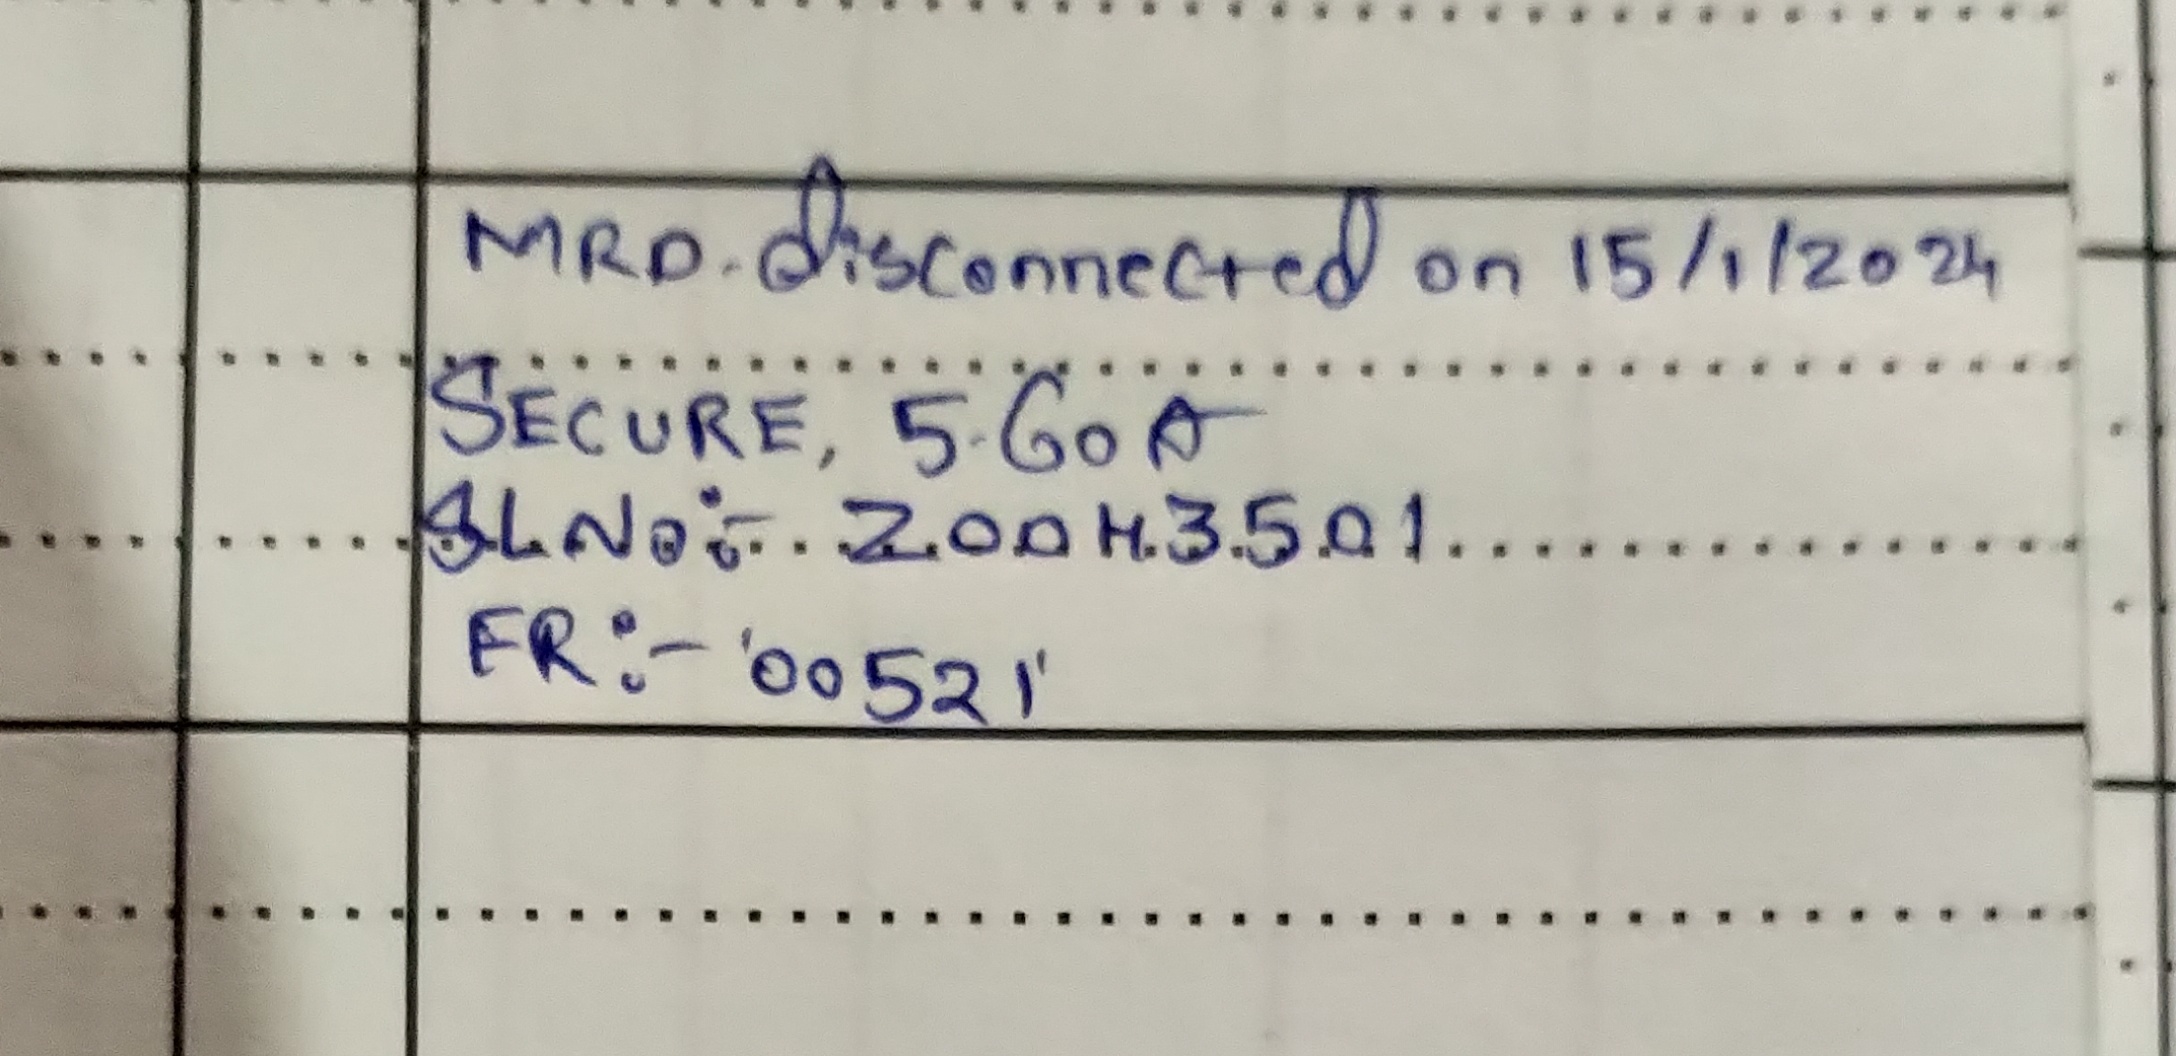 MRD. disconnected on 15/1/2024
SECURE, 5-60A
SLNo:- 20043501
FR:- '00521'